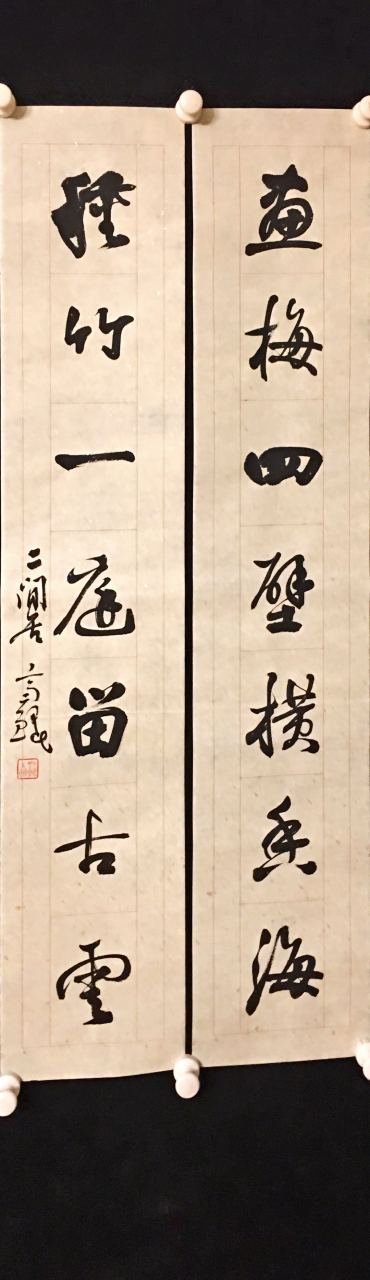 畫梅四壁橫香海
種竹一庭留古雲
二間 高